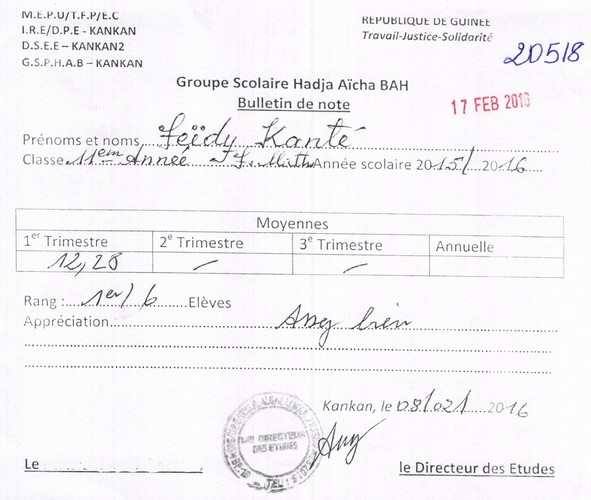 M.E.P.U/T.F.P/E.C
I.R.E/D.P.E - KANKAN
D.S.E.E – KANKAN2
G.S.P.H.A.B – KANKAN
REPUBLIQUE DE GUINEE
Travail-Justice-Solidarité
20518
Groupe Scolaire Hadja Aïcha BAH
Bulletin de note
17 FEB 2016
Prénoms et noms Kanté
Classe 11em Année Année scolaire 2015/ 2016
Moyennes
1er Trimestre 2e Trimestre 3e Trimestre Annuelle
12,28 – –
Rang : 1er/6 Elèves
Appréciation Assez bien
Kankan, le 08/02/ 2016
DIRECTEUR
DES ETUDES
Le
le Directeur des Etudes